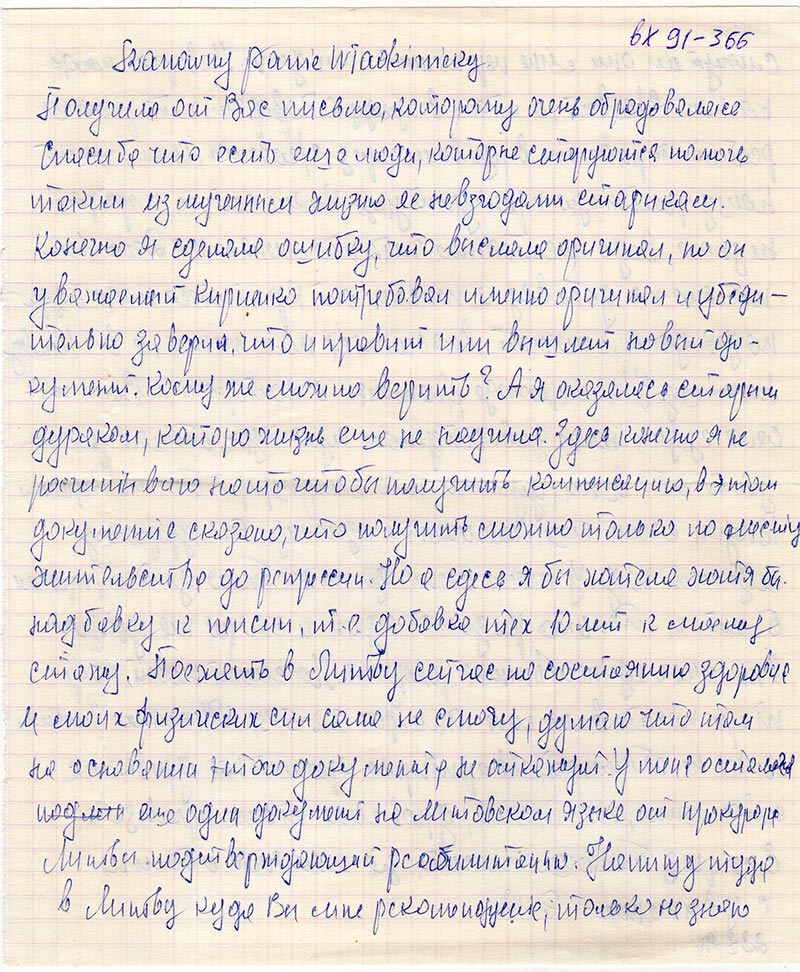 вх 91-366
Szanowny Panie Wladzimierzy
Получила от Вас письмо, которому очень обрадовалась
Спасиба что есть еще люди, которые стараются помочь
таким измученным жизню ее невзгодами старикам.
Конечно я сделала ошибку, что выслала оригинал, но он
уважаемый Кириенко потребовал именно оригинал и убеди-
тельно заверил, что исправит или вышлет новый до-
кумент. Кому же можно верить? А я оказалась старым
дураком, которо жизнь еще не научила. Здесь конечно я не
расчитываю на то чтобы получить компенсацию, в этом
документе сказано, что получить можно только по месту
жительства до репрессии. Но а здесь я бы хотела хотя бы.
надбавку к пенсии, т.е. добавка тех 10 лет к моему
стажу. Поехать в Литву сейчас по состоянию здоровие
и моих физических сил сама не смогу, думаю что там
на основании этого документа не откажут. У меня осталася
еще один документ на литовском языке от прокурора
Литвы подтверждающий реабилитацию. Напишу туда
в Литву куда Вы мне рекомендуете, только не знаю